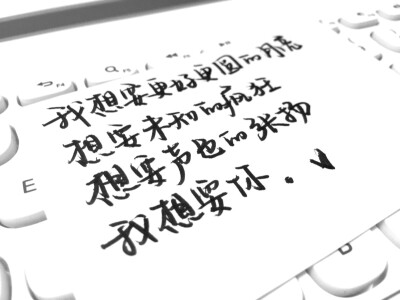 我想要更好更圆的月亮
想要未知的疯狂
想要声色的张扬
我想要你。
E